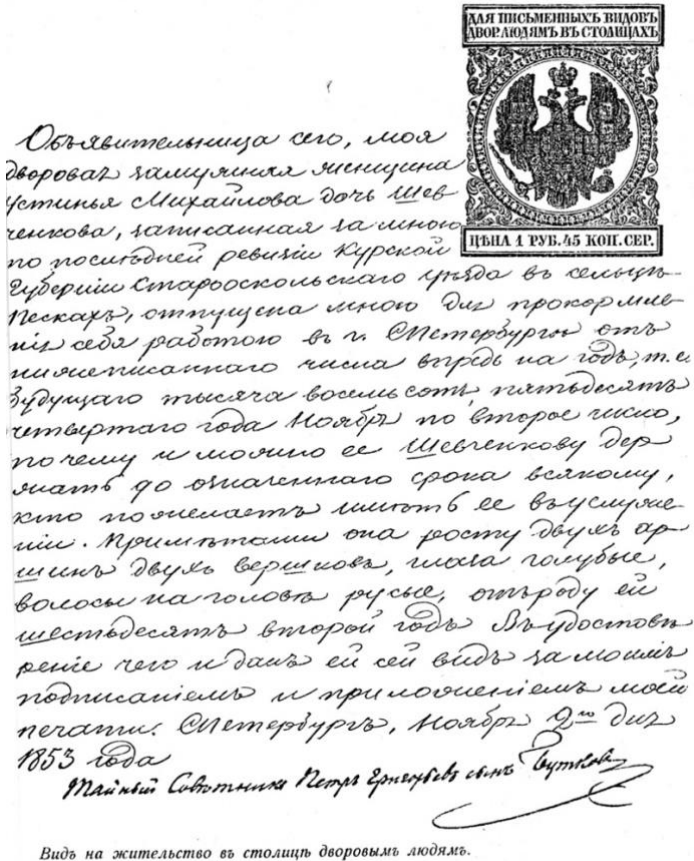 ДЛЯ ПИСЬМЕННЫХЪ ВИДОВЪ
ДВОР. ЛЮДЯМЪ ВЪ СТОЛИЦАХЪ
ЦѢНА 1 РУБ. 45 КОП. СЕР.
Объявительница сего, моя
дворовая замужняя женщина
Устинья Михайлова дочь Шев-
ченкова, записанная за мною
по послѣдней ревизіи Курской
Губерніи Старооскольскаго уѣзда въ сельцѣ
Пескахъ, отпущена мною для прокормле-
нія себя работою въ г. СПетербургѣ отъ
нижеписаннаго числа впредь на годъ, т. е.
будущаго тысяча восемьсотъ пятьдесятъ
четвертаго года Ноября по второе число,
почему и можно ее Шевченкову дер-
жать до означеннаго срока всякому,
кто пожелаетъ имѣть ее въ услуже-
ніи. Примѣтами она росту двухъ ар-
шинъ двухъ вершковъ, глаза голубые,
волосы на головѣ русые, отъ роду ей
шестьдесятъ второй годъ. Въ удостовѣ-
реніе чего и данъ ей сей видъ за моимъ
подписаніемъ и приложеніемъ моей
печати. СПетербургъ, Ноября 2го дня
1853 года
Тайный Совѣтникъ Петръ сынъ Бутковъ
Видъ на жительство въ столицѣ дворовымъ людямъ.